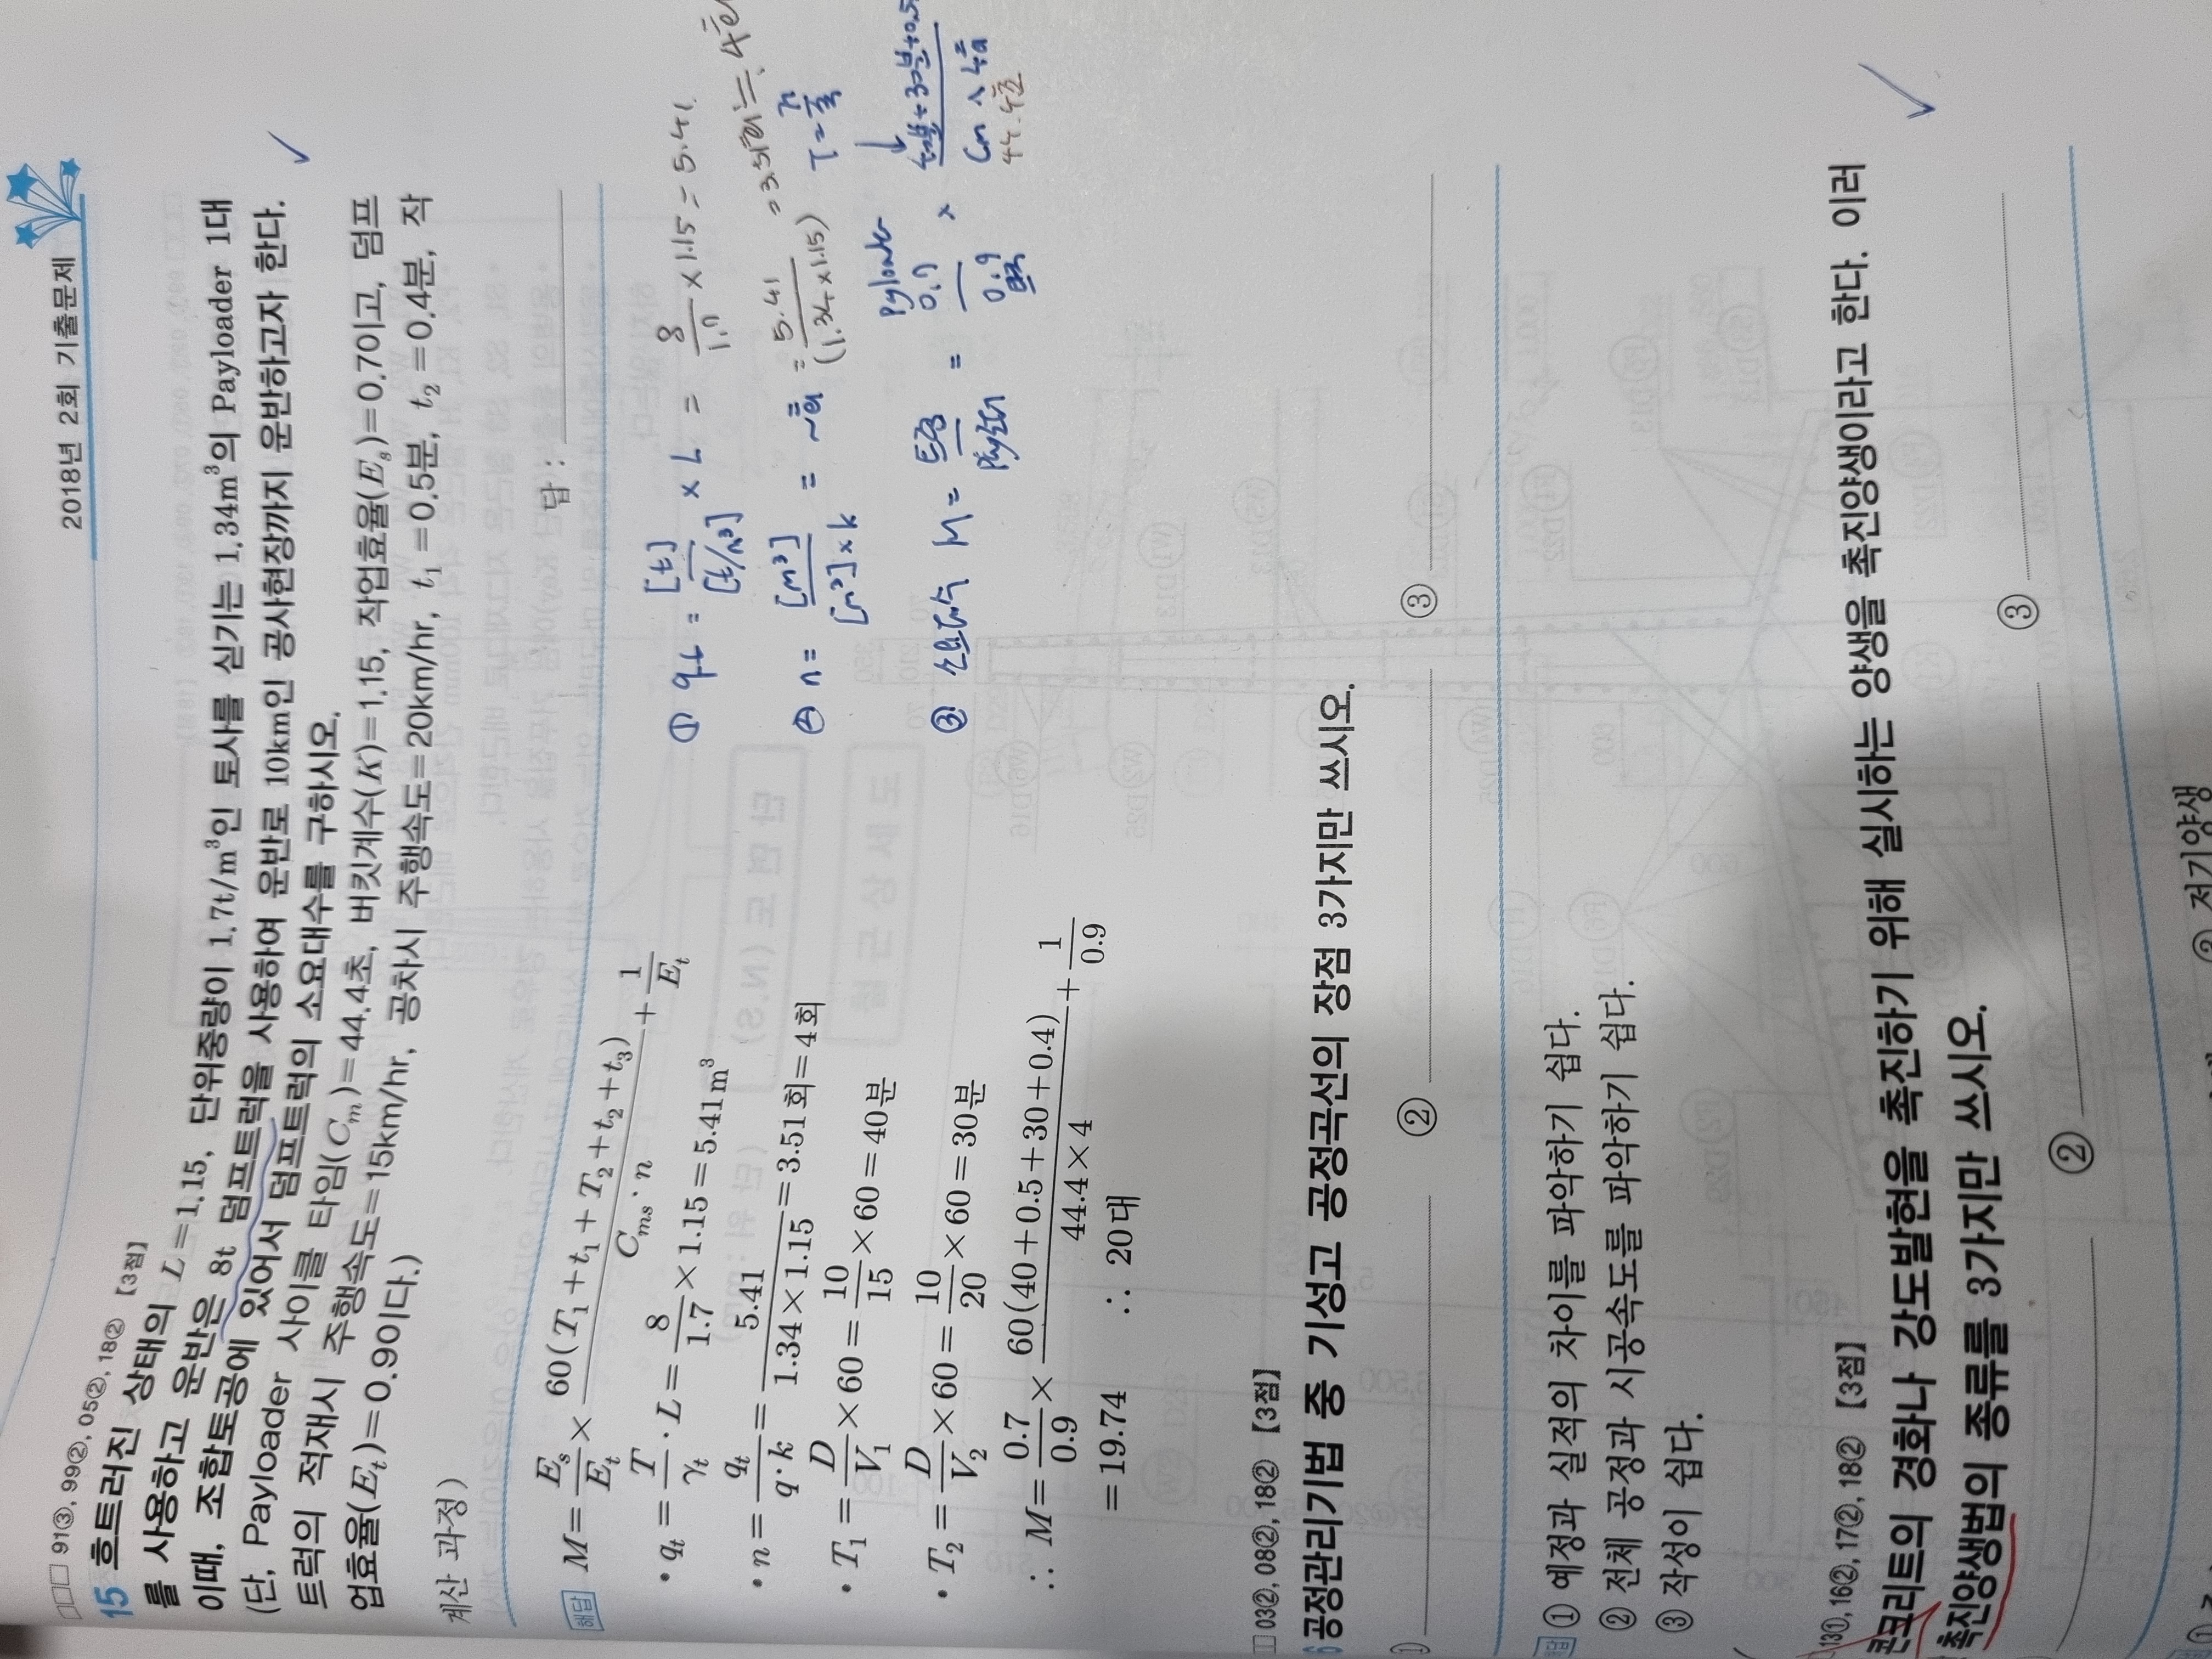 2018년 2회 기출문제
91③, 99②, 05②, 18② 【3점】
15 흐트러진 상태의 L=1.15, 단위중량이 1.7t/m³인 토사를 싣기는 1.34m³의 Payloader 1대
를 사용하고 운반은 8t 덤프트럭을 사용하여 운반로 10km인 공사현장까지 운반하고자 한다.
이때, 조합토공에 있어서 덤프트럭의 소요대수를 구하시오.
(단, Payloader 사이클 타임(Cm)=44.4초, 버킷계수(K)=1.15, 작업효율(Es)=0.7이고, 덤프
트럭의 적재시 주행속도=15km/hr, 공차시 주행속도=20km/hr, t₁=0.5분, t₂=0.4분, 작
업효율(Et)=0.9이다.)
계산 과정)
답 :
해답 M= Es/Et × 60(T₁+t₁+T₂+t₂+t₃)/(Cms·n) + 1/Et
• qt = T/γt · L = 8/1.7 ×1.15=5.41m³
• n = qt/(q·k) = 5.41/(1.34×1.15) =3.51회=4회
• T₁ = D/V₁ ×60 = 10/15 ×60=40분
• T₂ = D/V₂ ×60 = 10/20 ×60=30분
∴ M= 0.7/0.9 × 60(40+0.5+30+0.4)/(44.4×4) + 1/0.9
=19.74 ∴ 20대
① qt = [t]/[t/m³] × L = 8/1.7 ×1.15 = 5.41
② n = [m³]/([m³]×k) = ~회 = 5.41/(1.34×1.15) = 3.51회 ≒ 4회
③ 소요대수 M =
0.7
0.9
×
44.4초
03②, 08②, 18② 【3점】
공정관리기법 중 기성고 공정곡선의 장점 3가지만 쓰시오.
① ② ③
① 예정과 실적의 차이를 파악하기 쉽다.
② 전체 공정과 시공속도를 파악하기 쉽다.
③ 작성이 쉽다.
13①, 16②, 17②, 18② 【3점】
콘크리트의 경화나 강도발현을 촉진하기 위해 실시하는 양생을 촉진양생이라고 한다. 이러
촉진양생법의 종류를 3가지만 쓰시오.
② ③